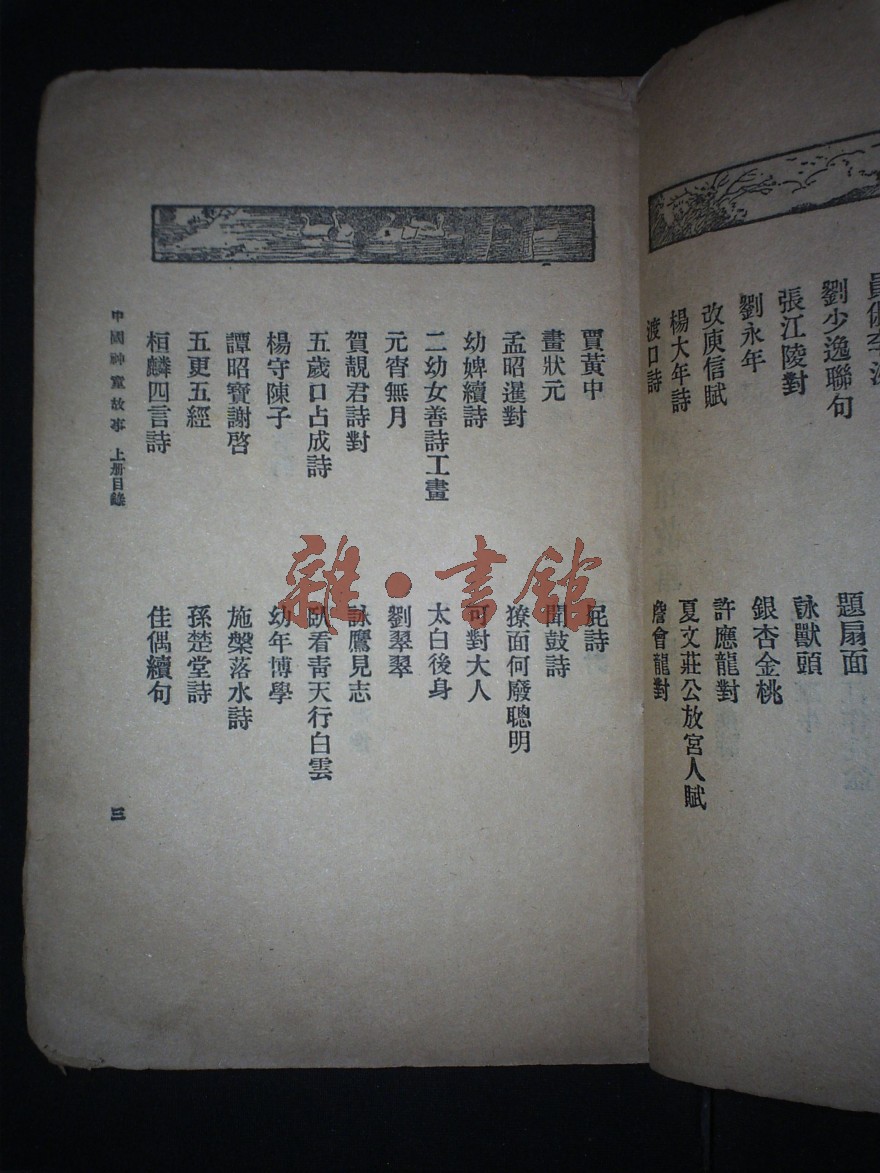 劉少逸聯句
張江陵對
劉永年
改庾信賦
楊大年詩
渡口詩
題扇面
詠獸頭
銀杏金桃
許應龍對
夏文莊公放宮人賦
詹會龍對
賈黃中
畫狀元
孟昭暹對
幼婢續詩
二幼女善詩工畫
元宵無月
賀靚君詩對
五歲口占成詩
楊守陳子
譚昭寶謝啓
五更五經
桓麟四言詩
屁詩
聞鼓詩
獠面何廢聰明
可對大人
太白後身
劉翠翠
詠鷹見志
臥看青天行白雲
幼年博學
施槃落水詩
孫楚堂詩
佳偶續句
中國神童故事 上册目錄
三
雜·書館